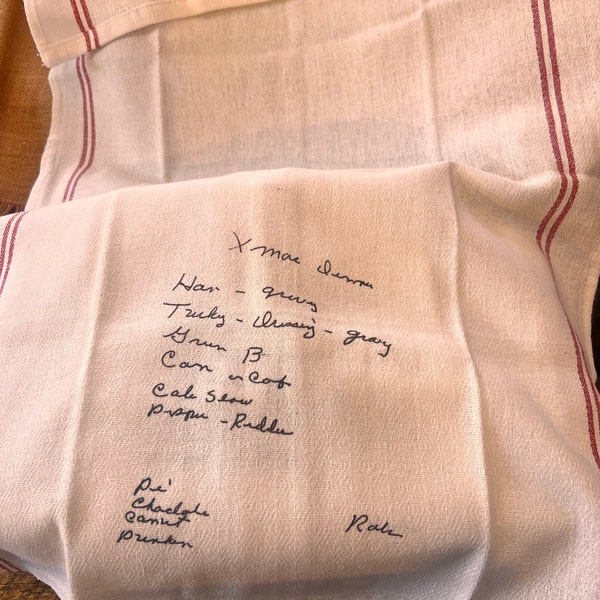 Xmas Dinner
Ham - gravy
Turky - Dressing - gravy
Green B
Corn on Cob
Cole Slaw
Pepper - Reddis
Pie
Choclate
Conut
Pumkin
Rols